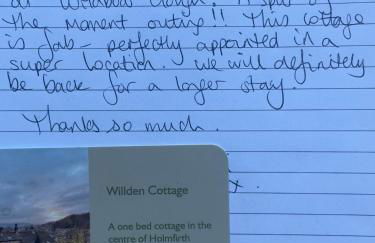 The Moment outing!! This cottage
is fab - perfectly appointed in a
super location. We will definitely
be back for a longer stay.
Thanks so much.
x.
Willden Cottage
A one bed cottage in the
centre of Holmfirth